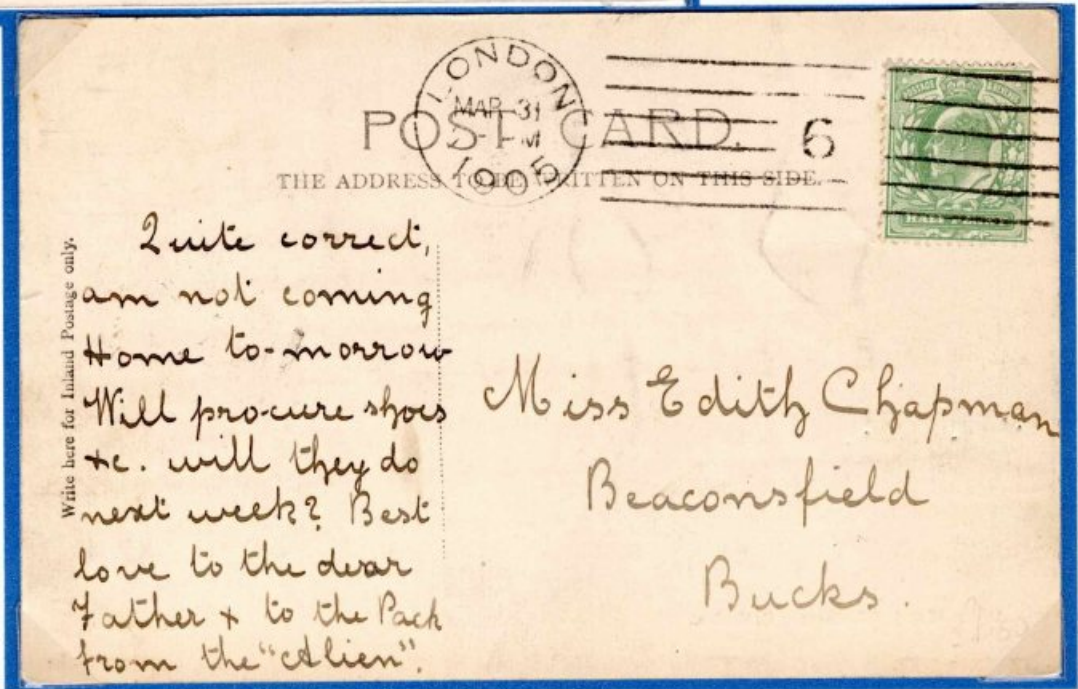 LONDON
MAR 31
PM
1905
6
POST CARD.
THE ADDRESS TO BE WRITTEN ON THIS SIDE.
POSTAGE & REVENUE
HALF PENNY
Write here for Inland Postage only.
Quite correct,
am not coming
Home to-morrow
Will pro-cure shoes
&c. will they do
next week? Best
love to the dear
Father & to the Pack
from the "Alien".
Miss Edith Chapman
Beaconsfield
Bucks.